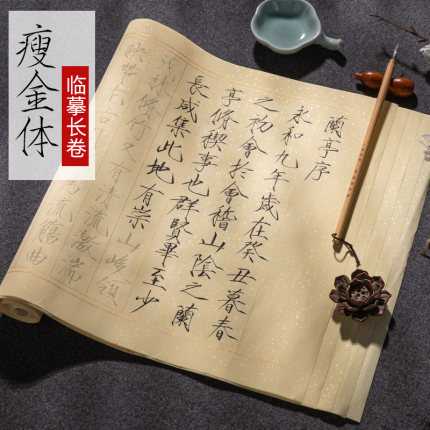 瘦金体
临摹长卷
蘭亭序
永和九年歲在癸丑暮春
之初會於會稽山陰之蘭
亭脩禊事也群賢畢至少
長咸集此地有崇山峻領
茂林脩竹又有清流激湍
映帶左右
為流觴曲